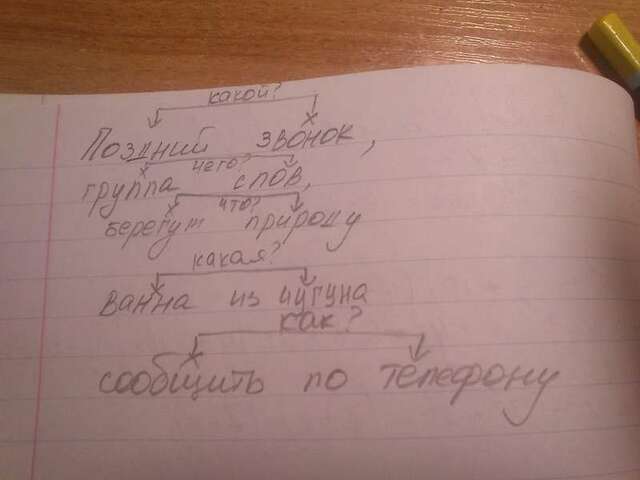 какой?
Поздний звонок,
чего?
группа слов,
что?
берегут природу
какая?
ванна из чугуна
как?
сообщить по телефону